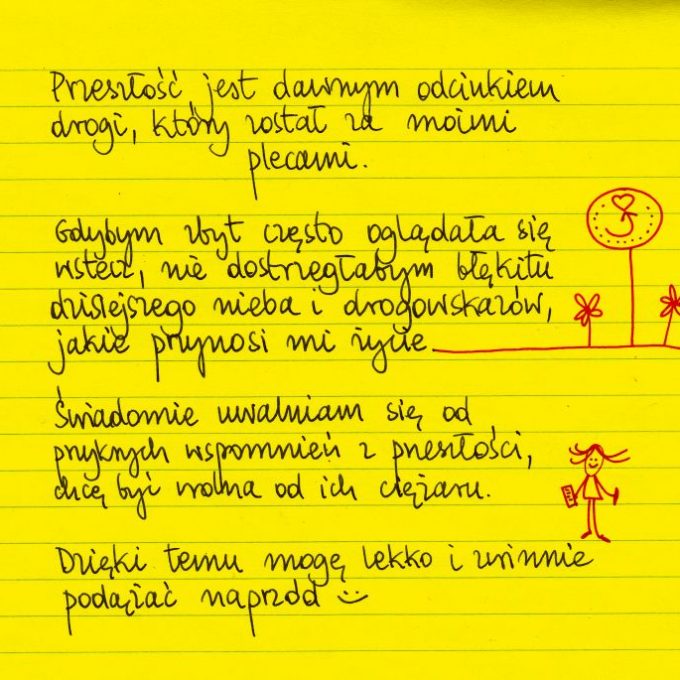 Przeszłość jest dawnym odcinkiem
drogi, który został za moimi
plecami.
Gdybym zbyt często oglądała się
wstecz, nie dostrzegłabym błękitu
dzisiejszego nieba i drogowskazów,
jakie przynosi mi życie
Świadomie uwalniam się od
przykrych wspomnień z przeszłości,
chcę być wolna od ich ciężaru.
Dzięki temu mogę lekko i zwinnie
podążać naprzód